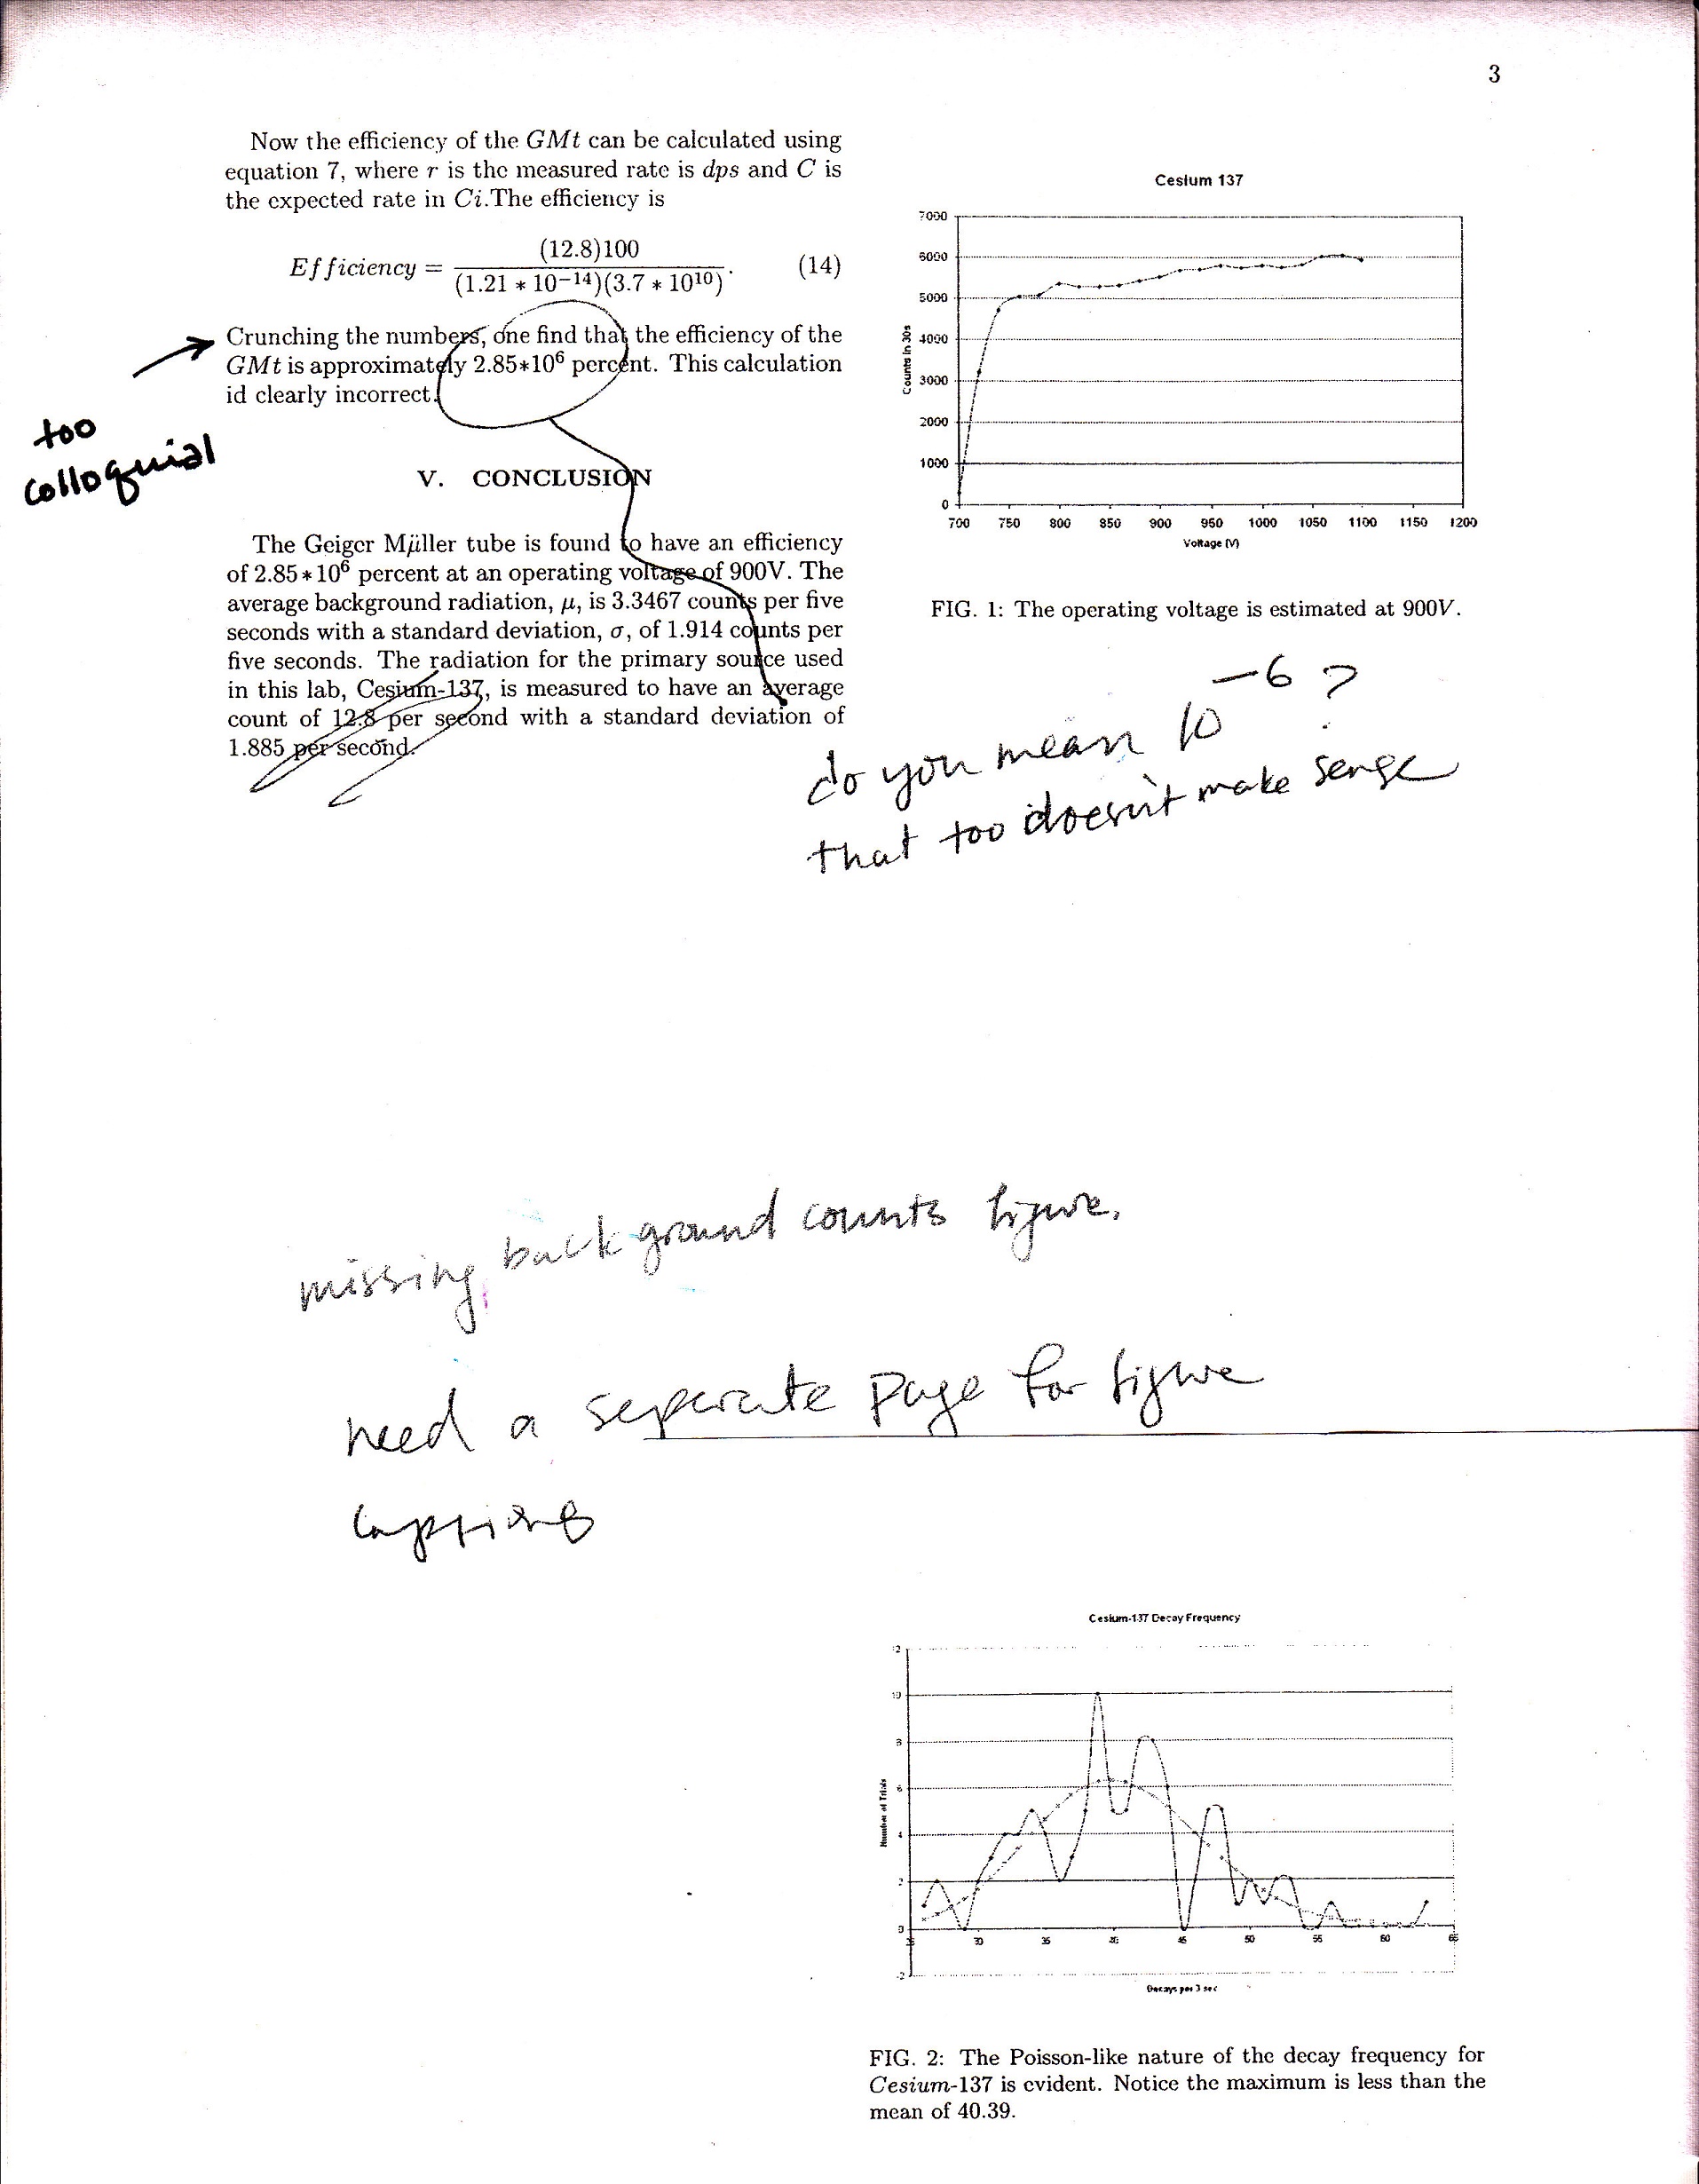 3
Now the efficiency of the GMt can be calculated using
equation 7, where r is the measured rate is dps and C is
the expected rate in Ci.The efficiency is
Efficiency = (12.8)100 / (1.21 * 10^−14)(3.7 * 10^10) . (14)
Crunching the numbers, one find that the efficiency of the
GMt is approximately 2.85*10^6 percent. This calculation
id clearly incorrect.
too
colloquial
V. CONCLUSION
The Geiger Müller tube is found to have an efficiency
of 2.85 * 10^6 percent at an operating voltage of 900V. The
average background radiation, μ, is 3.3467 counts per five
seconds with a standard deviation, σ, of 1.914 counts per
five seconds. The radiation for the primary source used
in this lab, Cesium-137, is measured to have an average
count of 12.8 per second with a standard deviation of
1.885 per second.
Cesium 137
7000
6000
5000
4000
3000
2000
1000
0
Counts in 30s
700 750 800 850 900 950 1000 1050 1100 1150 1200
Voltage (V)
FIG. 1: The operating voltage is estimated at 900V.
do you mean 10^−6 ?
that too doesn't make sense
missing background counts figure.
need a seperate page for figure
captions
Cesium-137 Decay Frequency
12
10
8
6
4
2
0
-2
Number of Trials
25 30 35 40 45 50 55 60 65
Decays per 3 sec
FIG. 2: The Poisson-like nature of the decay frequency for
Cesium-137 is evident. Notice the maximum is less than the
mean of 40.39.